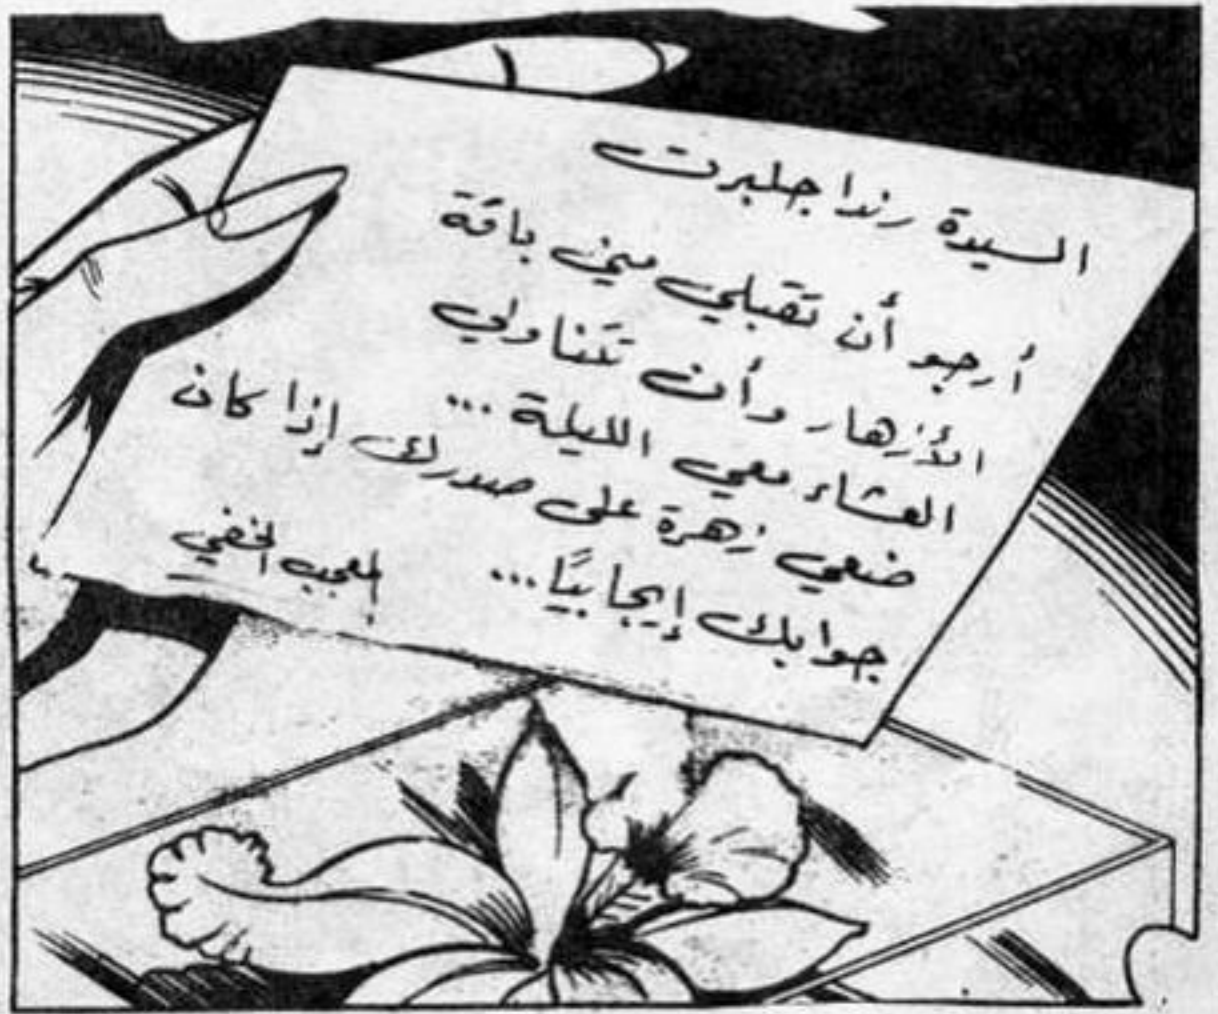 السيدة رندا جلبرت
أرجو أن تقبلي مني باقة
الأزهار وأن تتناولي
العشاء معي الليلة ...
ضعي زهرة على صدرك إذا كان
جوابك إيجابيًا ...
المعجب الخفي